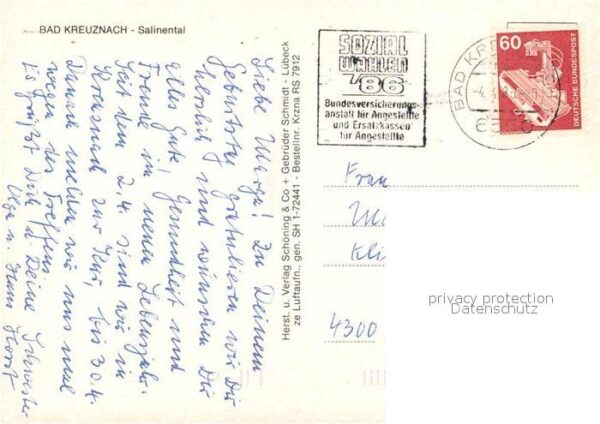 BAD KREUZNACH - Salinental
Liebe Marga! Zu Deinem
Geburtstag gratulieren wir Dir
herzlich und wünschen Dir
alles Gute, Gesundheit und
Freude im neuen Lebensjahr.
Seit dem 2.4. sind wir in
Kreuznach zur Kur, bis 30.4.
Danach melden wir uns mal
wegen des Treffens.
Es grüßt Dich Deine Schwester
u. Hans Horst
Herst. u. Verlag Schöning & Co + Gebrüder Schmidt - Lübeck
ze Luftaufn., gen. SH 1-72441 - Bestellnr. Krzna RS 7912
SOZIAL
WAHLEN
'86
Bundesversicherungs-
anstalt für Angestellte
und Ersatzkassen
für Angestellte
BAD KR
60
DEUTSCHE BUNDESPOST
Frau
4300
privacy protection
Datenschutz